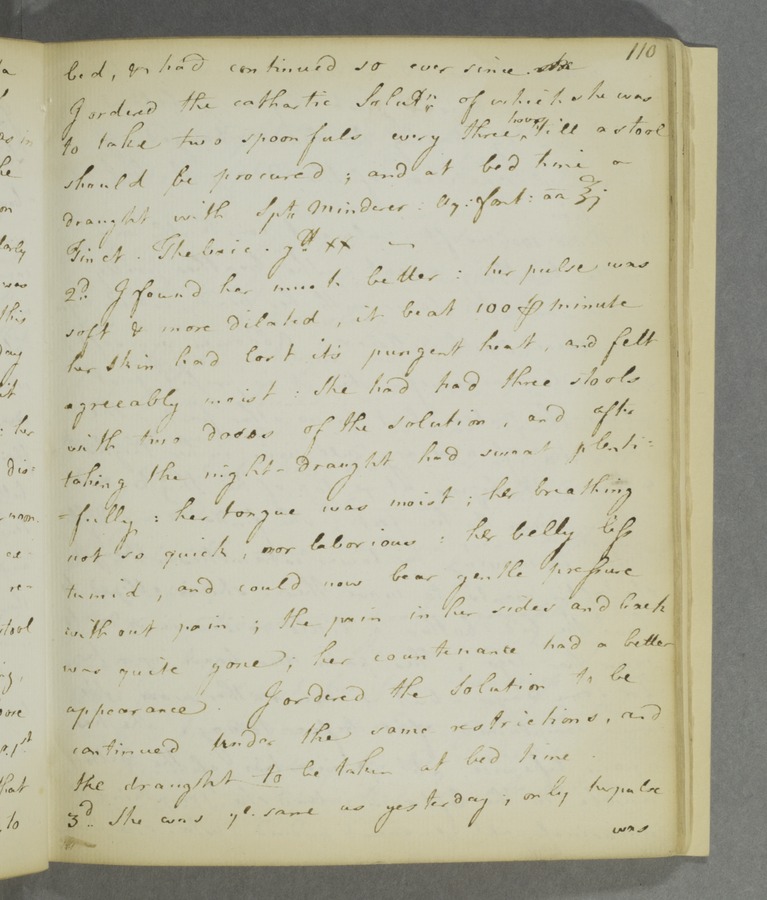 110
bed, & had continued so ever since
I ordered the cathartic Solutn of which she was
to take two spoonfuls every three hours, till a stool
should be procured ; and at bed time a
draught with Spt. Minderer : Aq: font: aa ℥j
Tinct. Thebaic. gtt xx
2d. I found her much better : her pulse was
soft & more dilated, it beat 100 ⅌ minute
her skin had lost its pungent heat, and felt
agreeably moist : She had had three stools
with two doses of the solution, and after
taking the night-draught had sweat plenti=
=fully : her tongue was moist ; her breathing
not so quick, nor laborious : her belly less
tumid, and could now bear gentle pressure
without pain ; the pain in her sides and back
was quite gone ; her countenance had a better
appearance. I ordered the Solution to be
continued under the same restrictions, and
the draught to be taken at bed time.
3d. She was ye. same as yesterday ; only her pulse
was